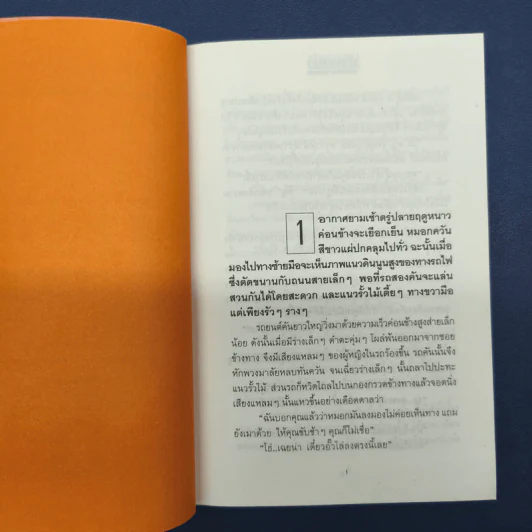 1
อากาศยามเช้าตรู่ปลายฤดูหนาว
ค่อนข้างจะเยือกเย็น หมอกควัน
สีขาวแผ่ปกคลุมไปทั่ว ฉะนั้นเมื่อ
มองไปทางซ้ายมือจะเห็นภาพแนวดินนูนสูงของทางรถไฟ
ซึ่งตัดขนานกับถนนสายเล็กๆ พอที่รถสองคันจะแล่น
สวนกันได้โดยสะดวก และแนวรั้วไม้เตี้ยๆ ทางขวามือ
แต่เพียงรัวๆ รางๆ
รถยนต์คันยาวใหญ่วิ่งมาด้วยความเร็วค่อนข้างสูงส่ายเล็ก
น้อย ดังนั้นเมื่อมีร่างเล็กๆ ดำตะคุ่มๆ โผล่พ้นออกมาจากซอย
ข้างทาง จึงมีเสียงแหลมๆ ของผู้หญิงในรถร้องขึ้น รถคันนั้นจึง
หักพวงมาลัยหลบทันควัน จนเฉี่ยวร่างเล็กๆ นั้นถลาไปปะทะ
แนวรั้วไม้ ส่วนรถก็หวิดไถลไปบนกองกรวดข้างทางแล้วจอดนิ่ง
เสียงแหลมๆ นั้นแหวขึ้นอย่างเดือดดาลว่า
“ฉันบอกคุณแล้วว่าหมอกมันลงมองไม่ค่อยเห็นทาง แถม
ยังเมาด้วย ให้คุณขับช้าๆ คุณก็ไม่เชื่อ”
“โธ่..เฉยน่า เดี๋ยวอั๊วไล่ลงตรงนี้เลย”